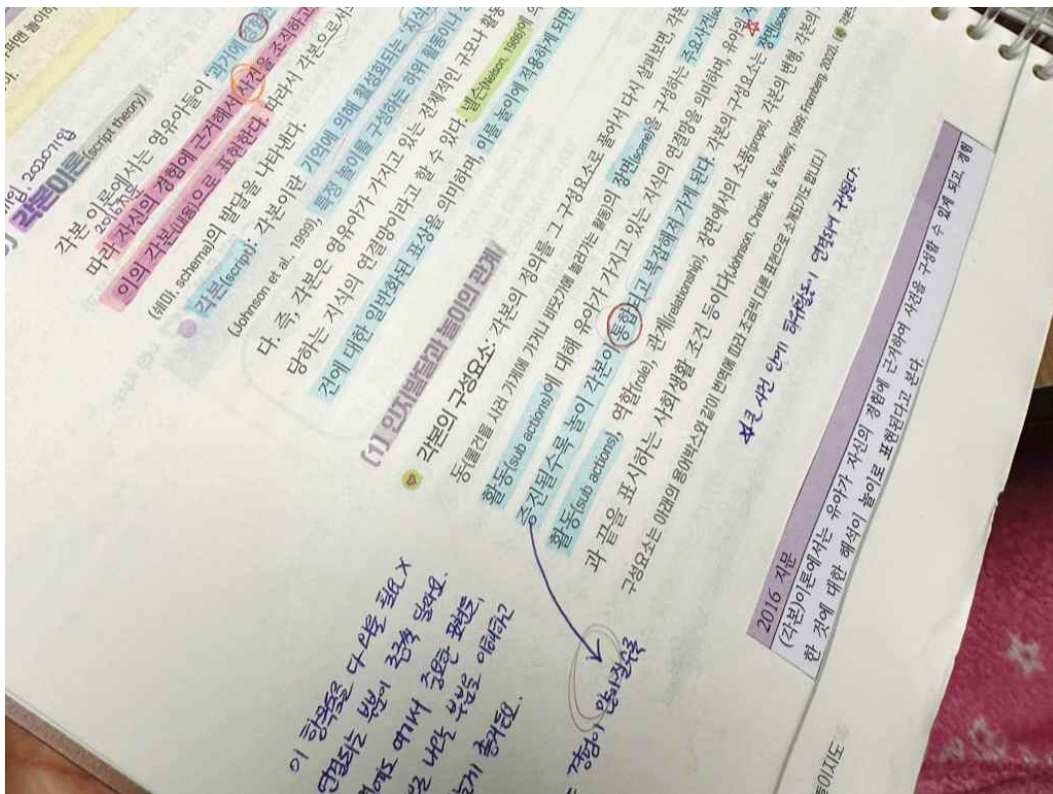 2016지문
각본이론(script theory)
각본 이론에서는 영유아들이 '과거에
따라 자신의 경험에 근거해서 사건을 조직하고
이의 각본(내용)으로 표현한다. 따라서 각본으로서
(쉐마, schema)의 발달을 나타낸다.
각본(script): 각본이란 기억에 의해 활성화되는 '지식
(Johnson et al., 1999), 특정 놀이를 구성하는 하위 활동이나
다. 즉, 각본은 영유아가 가지고 있는 전체적인 규모나 활동
당하는 지식의 연결망이라고 할 수 있다. 넬슨(Nelson, 1986)에 의
건에 대한 일반화된 표상을 의미하며, 이를 놀이에 적용하게 되면
(1) 인지발달과 놀이의 관계
각본의 구성요소: 각본의 정의를 그 구성요소로 풀어서 다시 살펴보면, 각본
동(물건을 사러 가게에 가거나 바닷가에 놀러가는 활동)의 장면(scene)을 구성하는 주요사건
활동(sub actions)에 대해 유아가 가지고 있는 지식의 연결망을 의미하며, 유아의
추진될수록 놀이 각본이 통합되고 복잡해져 가게 된다. 각본의 구성요소는 장면
활동(sub actions), 역할(role), 관계(relationship), 장면에서의 소품(props), 각본의 변형, 각본의
과 끝을 표시하는 사회생활 조건 등이다(Johnson, Christie, & Yawkey, 1999; Fromberg, 2002).
구성요소는 아래의 용어박스와 같이 번역에 따라 조금씩 다른 표현으로 소개되기도 합니다.)
큰 사건 안에 하위활동이 연결되어 구성된다.
2016 지문
(각본)이론에서는 유아가 자신의 경험에 근거하여 사건을 구성할 수 있게 되고, 경험
한 것에 대한 해석이 놀이로 표현된다고 본다.
이 항목들을 다 외울 필요 X
연결되는 부분이 조금씩 달라요.
여기서 중요한 표현들,
부분을 이해하고
경험이 많아질수록